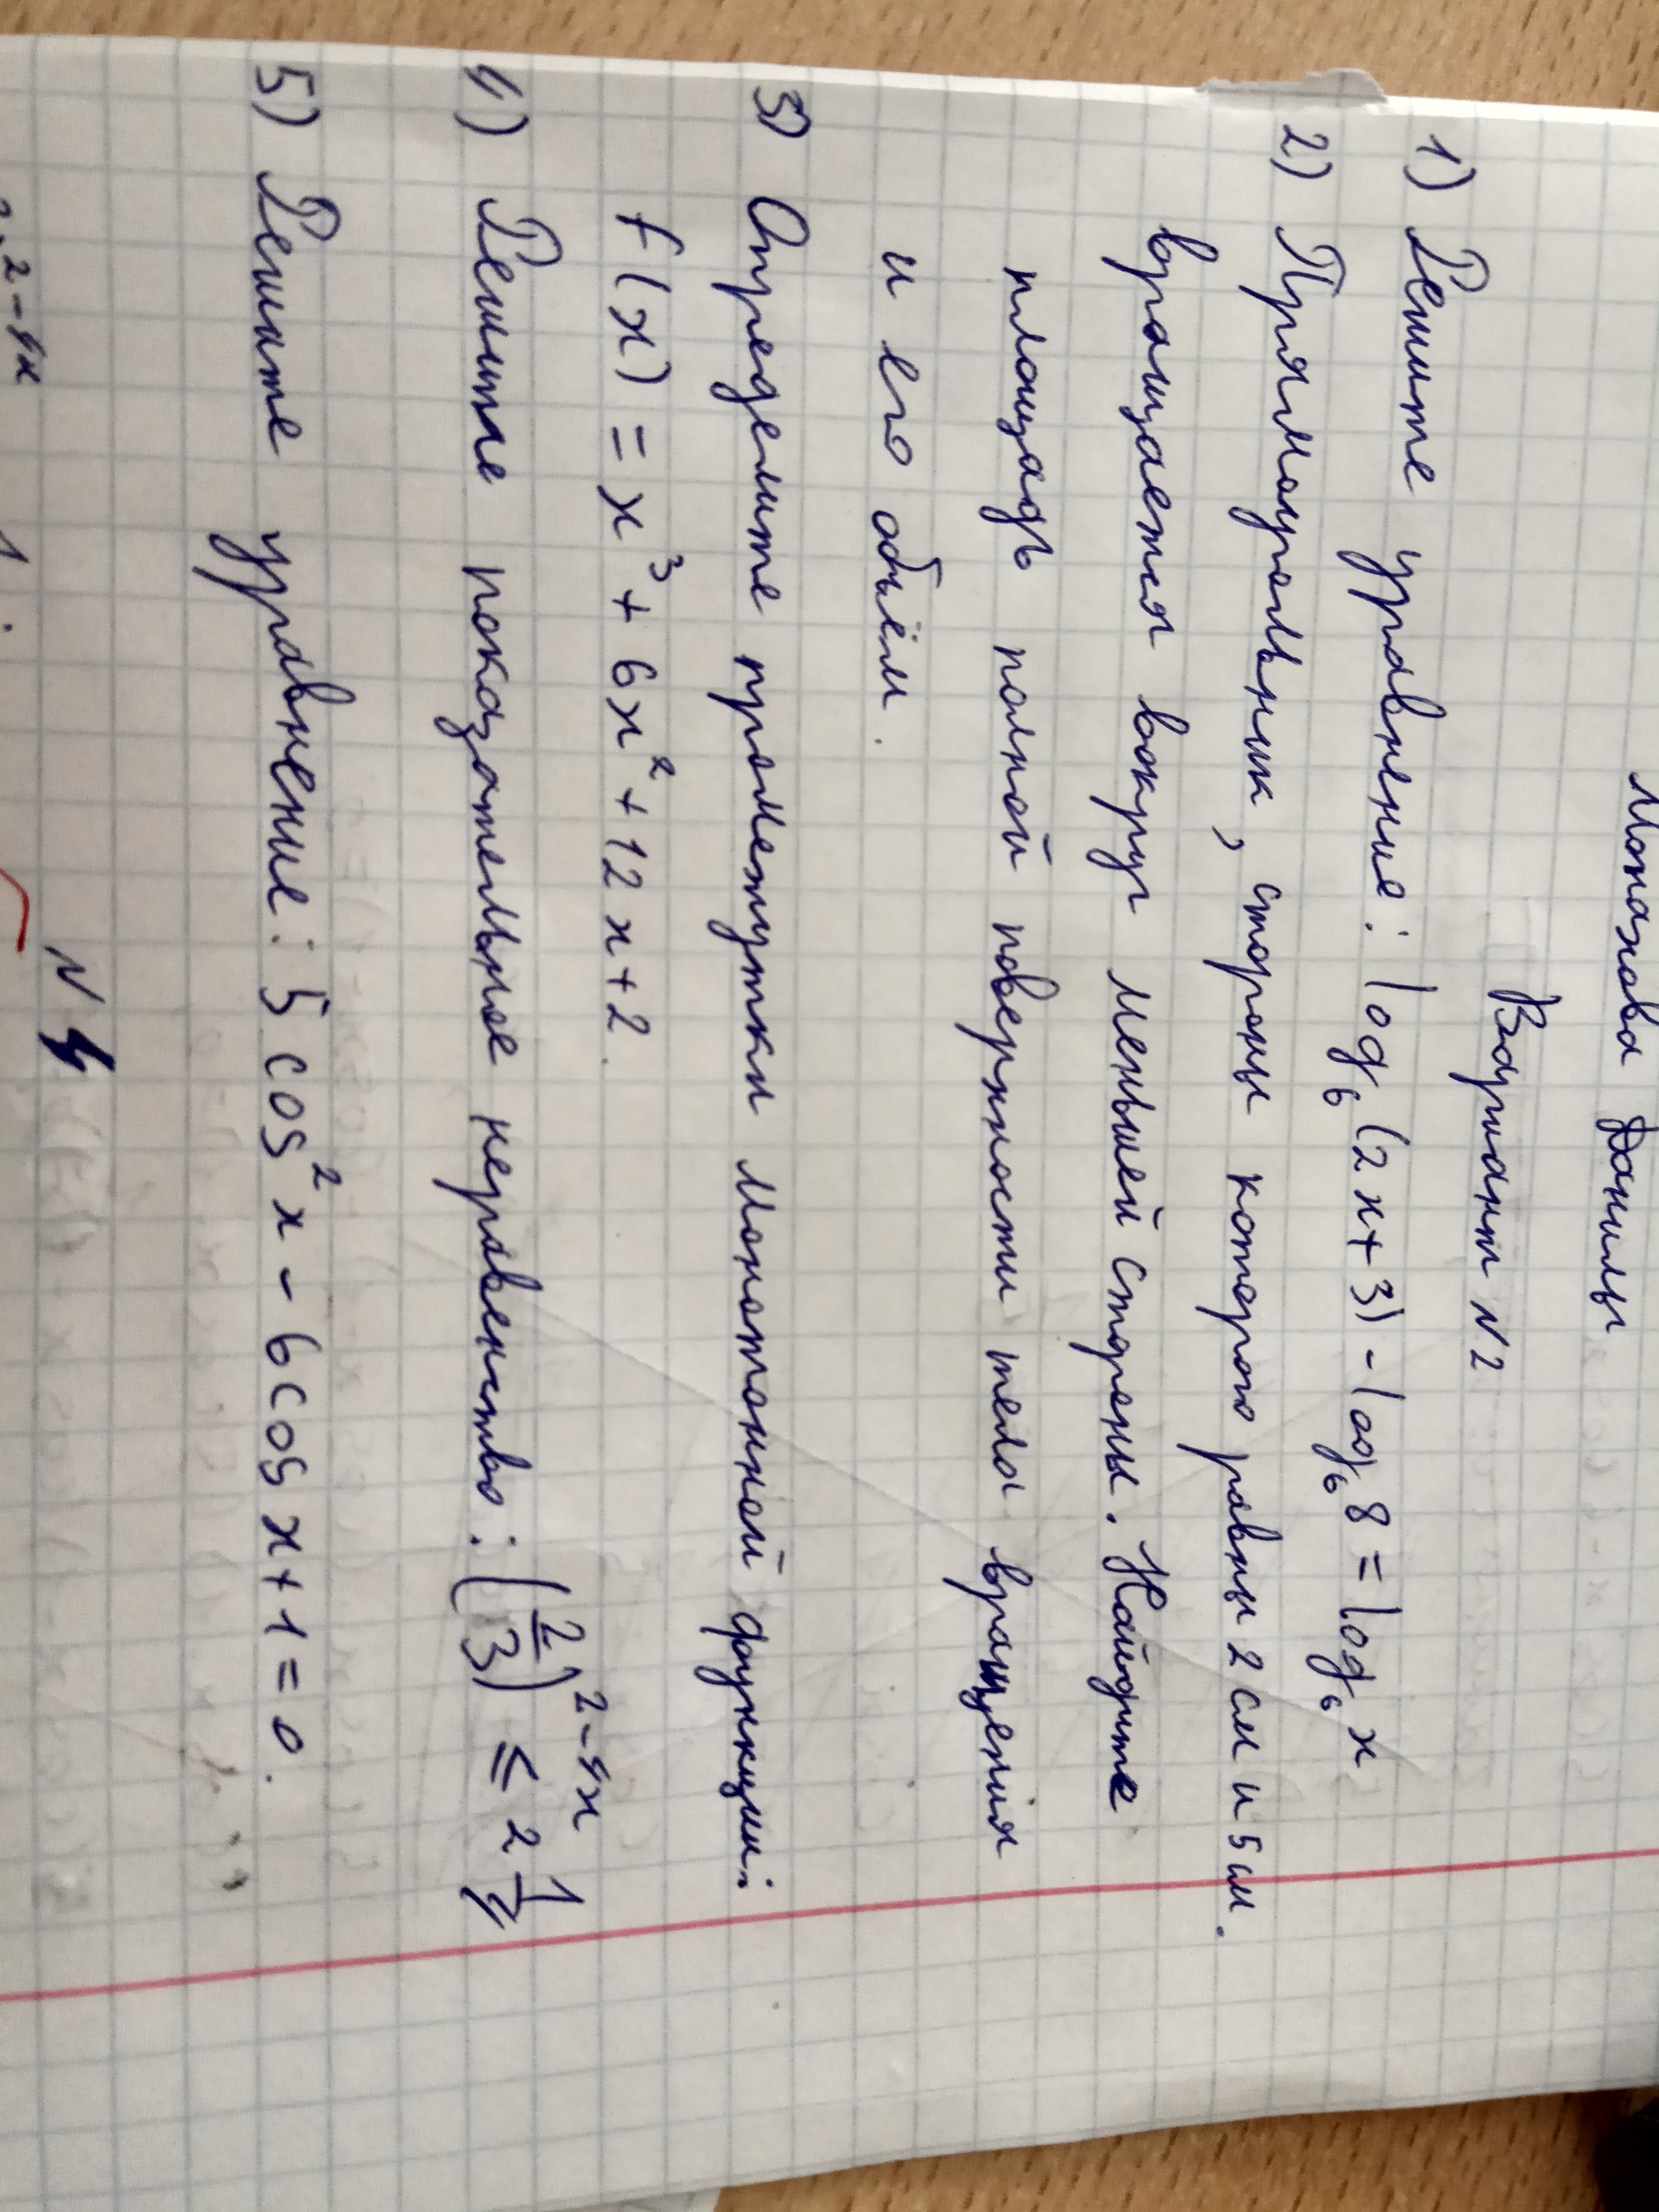 Данилы
Вариант N2
1) Решите уравнение: log₆(2x+3) - log₆ 8 = log₆ x
2) Прямоугольник, стороны которого равны 2 см и 5 см.
вращается вокруг меньшей стороны. Найдите
площадь полной поверхности тела вращения
и его объём.
3) Определите промежутки монотонной функции:
f(x) = x³ + 6x² + 12x + 2.
4) Решите показательное неравенство: (2/3)^(2-4x) ≤ 2 1/4
5) Решите уравнение: 5 cos² x - 6 cos x + 1 = 0.
N 4
2-4x 1